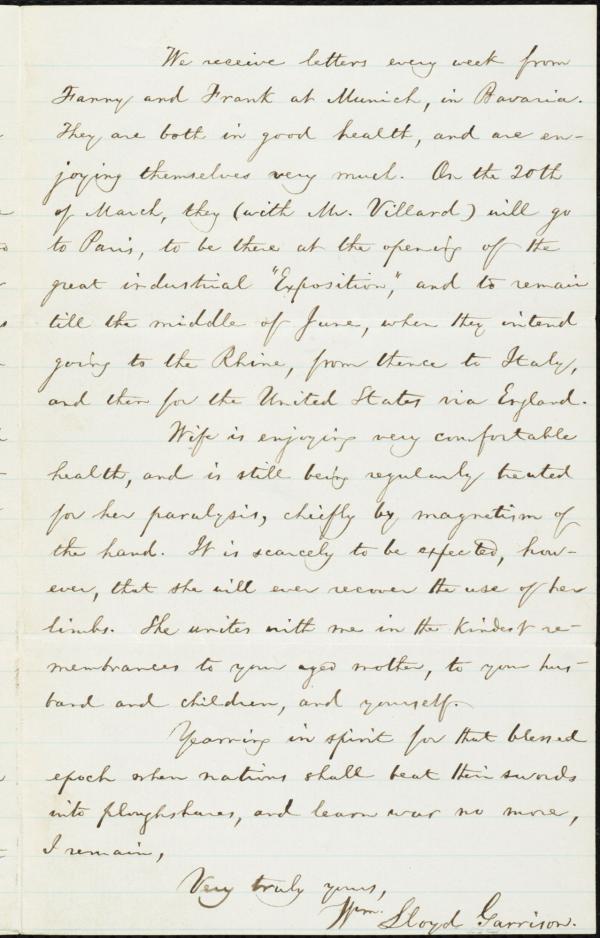 We receive letters every week from
Fanny and Frank at Munich, in Bavaria.
They are both in good health, and are en-
joying themselves very much. On the 20th
of March, they (with Mr. Villard) will go
to Paris, to be there at the opening of the
great industrial "Exposition," and to remain
till the middle of June, when they intend
going to the Rhine, from thence to Italy,
and then for the United States via England.
Wife is enjoying very comfortable
health, and is still being regularly treated
for her paralysis, chiefly by magnetism of
the hand. It is scarcely to be expected, how-
ever, that she will ever recover the use of her
limbs. She unites with me in the kindest re-
membrances to your aged mother, to your hus-
band and children, and yourself.
Yearning in spirit for that blessed
epoch when nations shall beat their swords
into ploughshares, and learn war no more,
I remain,
Very truly yours,
Wm. Lloyd Garrison.